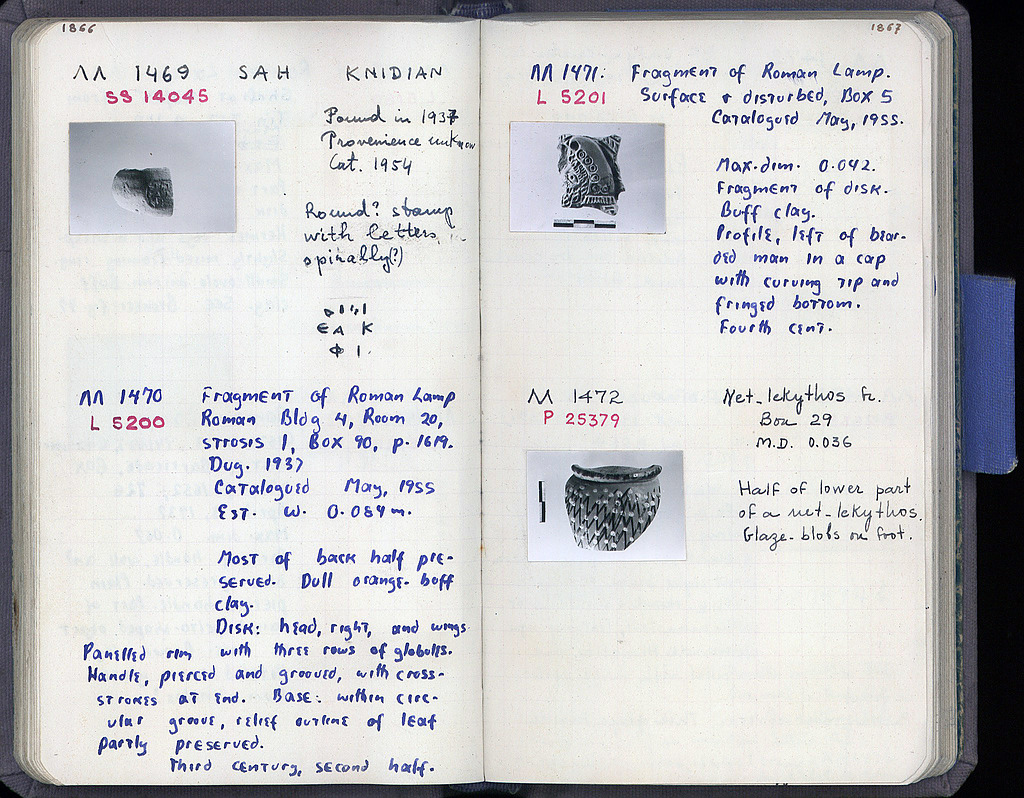 1866
ΛΛ 1469 SAH KNIDIAN
SS 14045
Found in 1937
Provenience unknow
Cat. 1954
Round? stamp
with letters
spirably(?)
ΕΑ Κ
Φ Ι
ΛΛ 1470 Fragment of Roman Lamp
L 5200 Roman Bldg 4, Room 20,
strosis 1, Box 90, p. 1619.
Dug. 1937
Catalogued May, 1955
Est. W. 0.084m.
Most of back half pre-
served. Dull orange-buff
clay.
Disk: head, right, and wings.
Panelled rim with three rows of globules.
Handle, pierced and grooved, with cross-
strokes at end. Base: within circ-
ular groove, relief outline of leaf
partly preserved.
Third century, second half.
1867
ΛΛ 1471. Fragment of Roman Lamp.
L 5201 Surface & disturbed, Box 5
Catalogued May, 1955.
Max. dim. 0.042.
Fragment of disk.
Buff clay.
Profile, left of bear-
ded man in a cap
with curving tip and
fringed bottom.
Fourth cent.
ΛΛ 1472 Net-lekythos fr.
P 25379 Box 29
M.D. 0.036
Half of lower part
of a net-lekythos.
Glaze-blobs on foot.